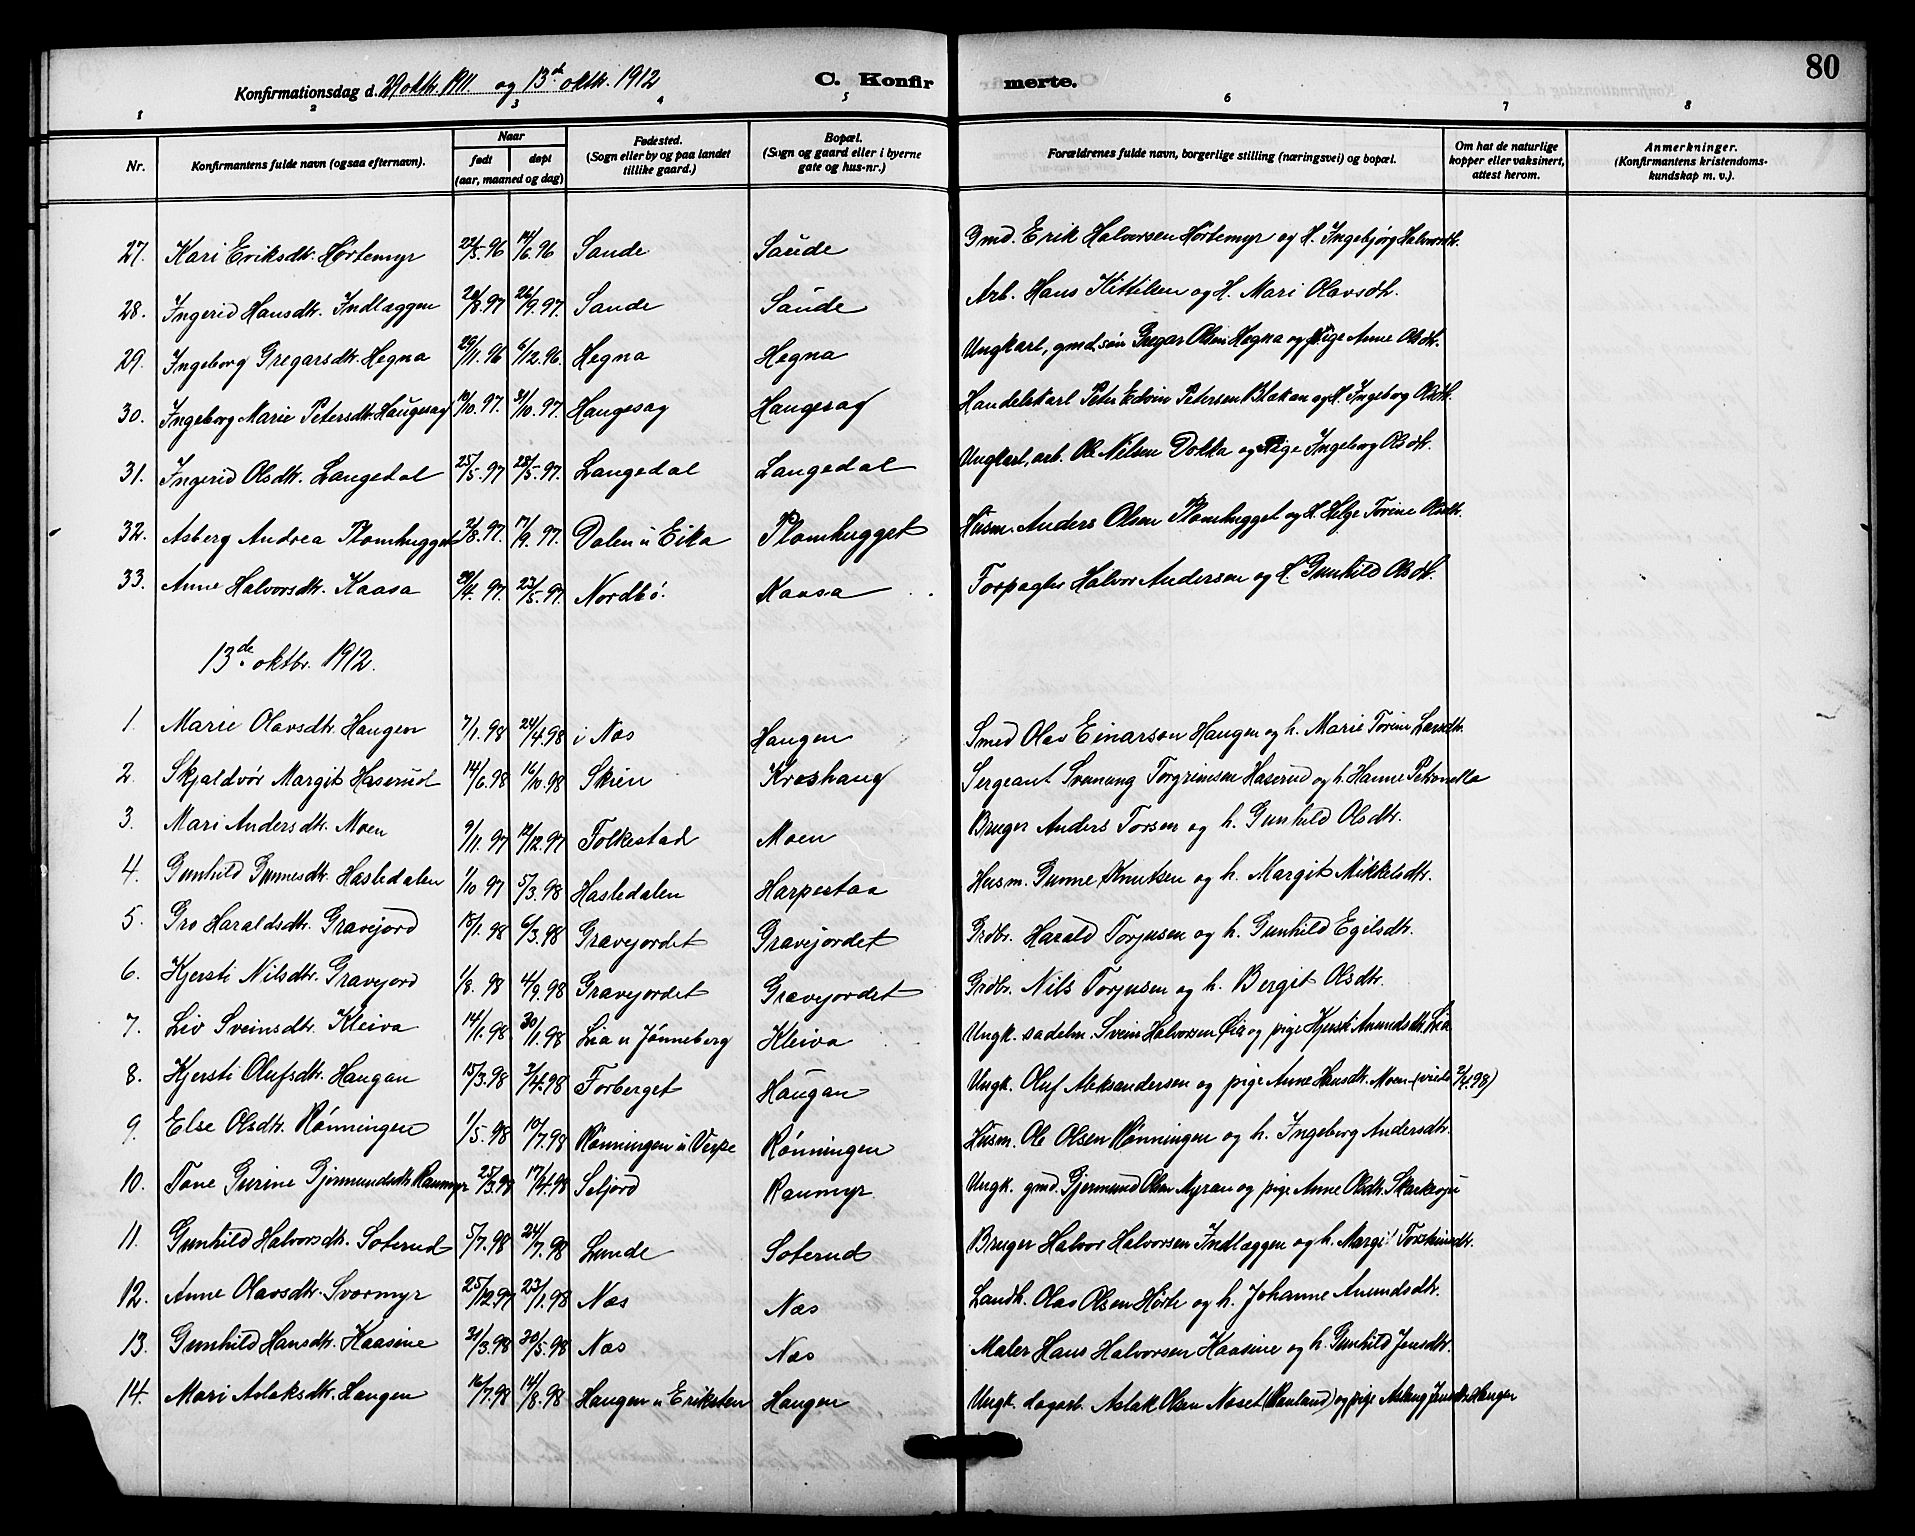 80
Konfirmationsdag d. 29 oktbr. 1911 og 13de oktbr. 1912 C. Konfirmerte.
1 2 3 4 5 6 7 8
Nr. Konfirmantens fulde navn (ogsaa efternavn). Naar født døpt (aar, maaned og dag) Fødested. (Sogn eller by og paa landet tillike gaard.) Bopæl. (Sogn og gaard eller i byerne gate og hus-nr.) Forældrenes fulde navn, borgerlige stilling (næringsvei) og bopæl. Om hat de naturlige kopper eller vaksinert, attest herom. Anmerkninger. (Konfirmantens kristendomskundskap m. v.).
27. Kari Eriksdtr. Hørtemyr 22/5.96 14/6.96 Saude Saude Gmd. Erik Halvorsen Hørtemyr og H. Ingebjørg Halvorsdtr.
28. Ingerid Hansdtr. Indlæggen 20/8.97 26/9.97. Saude Saude Arb. Hans Kittilsen og H. Mari Olavsdtr.
29. Ingeborg Gregarsdtr. Hegna 29/11.96 6/12.96. Hegna Hegna Ungkarl, gmd.søn Gregar Olsen Hegna og Pige Anne Olsdtr.
30. Ingeborg Marie Petersdtr. Haugesag 10.97. 31/10.97. Haugesag Haugesag Handelskarl Peter Edvin Petersen Blakan og H. Ingeborg Olsdtr.
31. Ingerid Olsdtr. Langedal 25/5.97 28/5.97. Langedal Langedal Ungkarl, arb. Ole Nilsen Dokka og Pige Ingeborg Olsdtr.
32. Asberg Andrea Plomhugget 8.97. 17/9.97. Dalen u Eika Plomhugget Husm. Anders Olsen Plomhugget og H. Helge Torine Olsdtr.
33. Anne Halvorsdtr. Kaasa 4.97. 23/5.97. Nordbø. Kaasa Forpagter Halvor Andersen og H. Gunhild Olsdtr.
13de oktbr. 1912.
1. Marie Olavsdtr. Haugen 7/1.98 24/4.98 i Næs Haugen Smed Olav Einarson Haugen og h. Marie Torine Larsdtr.
2. Skjaldvør Margit Haserud 14/6.98 16/10.98 Skien Kroshaug Sergeant Svenung Torgrimsen Haserud og h. Hanne Petronella
3. Mari Andersdtr. Moen 9/11.97 12/12.97 Folkestad Moen Bruger Anders Torsen og h. Gunhild Olsdtr.
4. Gunhild Gunnesdtr. Hasledalen 1/10 97 5/3.98 Hasledalen Harpestaa Husm. Gunne Knutsen og h. Margit Mikkelsdtr.
5. Gro Haraldsdtr. Gravejord 18/1.98 6/3.98 Gravejordet Gravejordet Grdbr. Harald Torjusen og h. Gunhild Egilsdtr.
6. Kjersti Nilsdtr. Gravejord 1/8.98 4/9.98 Gravejordet Gravejordet Grdbr. Nils Torjusen og h. Bergit Olsdtr.
7. Liv Sveinsdtr. Kleiva 14/1.98. 30/1.98 Lia u Jønneberg Kleiva Ungk. sadelm. Svein Halvorsen Øia og pige Kjersti Anundsdtr. Lia
8. Kjersti Olufsdtr. Haugan 15/3.98 3/4.98 Forberget Haugan Ungk. Oluf Aleksandersen og pige Anne Hansdtr. Moen (viede 2/4.98)
9. Else Olsdtr. Rønningen 1/5.98 10/7.98 Rønningen u Verpe Rønningen Husm. Ole Olsen Rønningen og h. Ingeborg Andersdtr.
10. Tone Gurine Gjermundsdtr. Raumyr 25/3.98 17/4.98 Seljord Raumyr Ungk. gmd. Gjermund Olsen Myran og pige Anne Olsdtr.
11. Gunhild Halvorsdtr. Soterud 5/7.98 24/7.98 Lunde Soterud Bruger Halvor Halvorsen Indlæggen og h. Margit
12. Anne Olavsdtr. Svarmyr 25/12.97 23/1.98 Næs Næs Landh. Olav Olsen Hørte og h. Johanne Anundsdtr.
13. Gunhild Hansdtr. Kaasine 21/3.98 20/5.98 Næs Næs Maler Hans Halvorsen Kaasine og h. Gunhild Jensdtr.
14. Mari Aslaksdtr. Haugen 16/7.98 14/8.98 Haugen u Eriksten Haugen Ungk. dagarb. Aslak Olsen Næset (Rauland) og pige Aslaug Haugen